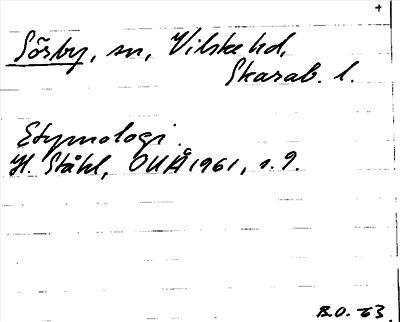 +
Sörby, sn, Vilske hd,
Skarab. l.
Etymologi.
H. Ståhl, OUÅ 1961, s. 9.
B.O. -63.